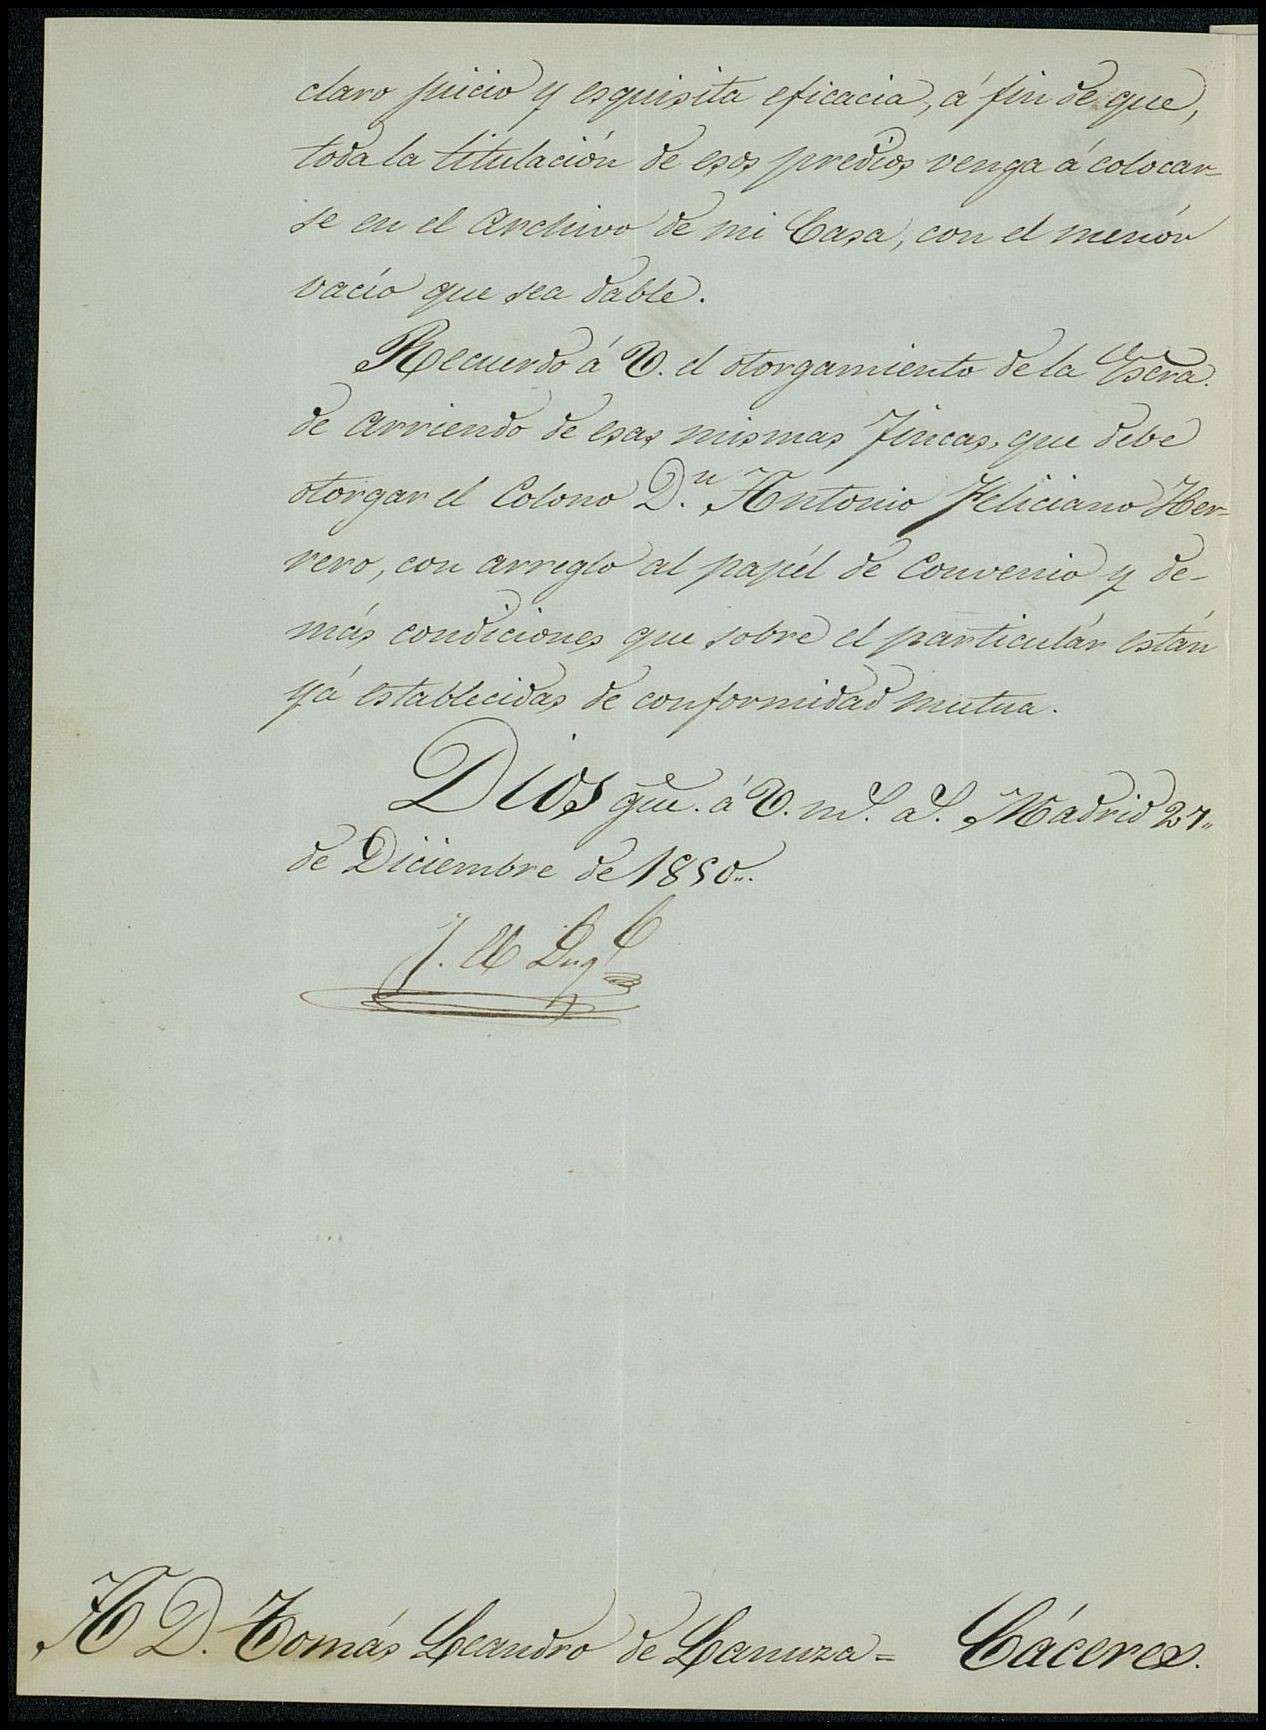 claro juicio y esquisita eficacia, á fin de que,
toda la titulación de esos predios venga á colocar-
se en el Archivo de mi Casa, con el menór
vacío que sea dable.
Recuerdo á V. el otorgamiento de la Escra.
de Arriendo de esas mismas Fincas, que debe
otorgar el Colono D.n Antonio Feliciano Her-
rero, con arreglo al papél de Convenio y de-
más condiciones que sobre el particulár están
yá establecidas de conformidad mutua.
Dios gue. á V. m.s a.s Madrid 27
de Diciembre de 1850.
A D. Tomás Leandro de Lanuza = Cáceres.